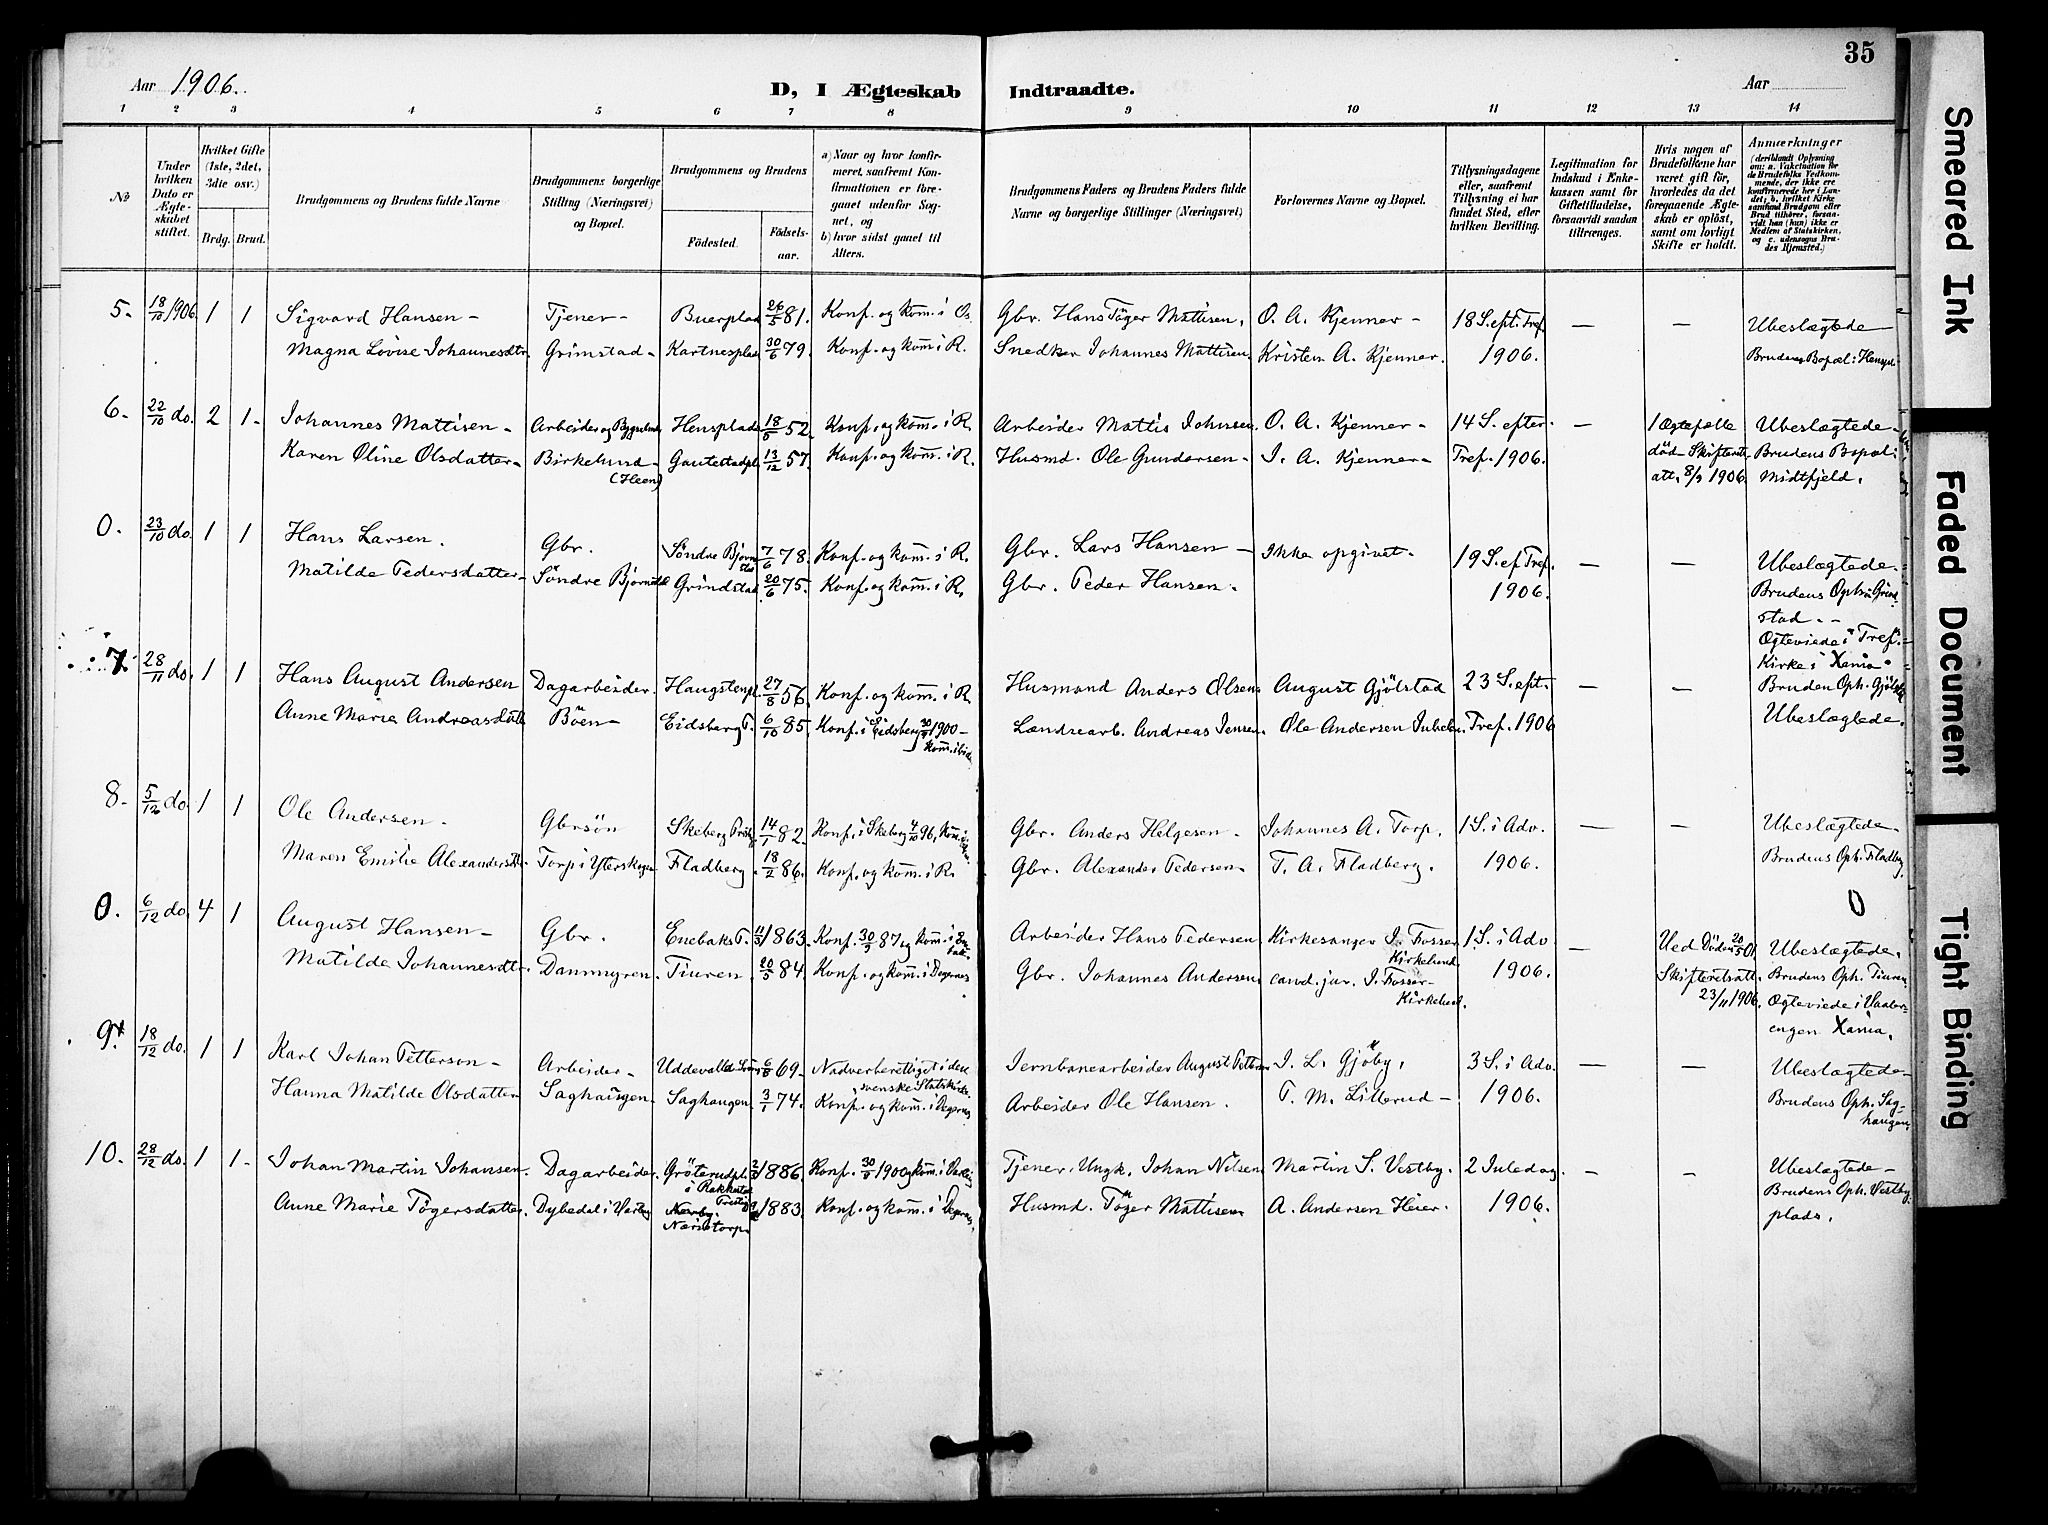 35
Aar 1906.
D, I Ægteskab Indtraadte.
Aar
1 2 3 4 5 6 7 8 9 10 11 12 13 14
№
Under hvilken Dato er Ægteskabet stiftet.
Hvilket Gifte (1ste, 2det, 3die osv.)
Brdg. Brud.
Brudgommens og Brudens fulde Navne
Brudgommens borgerlige Stilling (Næringsvei) og Bopæl.
Brudgommens og Brudens
Födested. Födselsaar.
a) Naar og hvor konfirmeret, saafremt Konfirmationen er foregaaet udenfor Sognet, og
b) hvor sidst gaaet til Alters.
Brudgommens Faders og Brudens Faders fulde Navne og borgerlige Stillinger (Næringsvei)
Forlovernes Navne og Bopæl.
Tillysningsdagene eller, saafremt Tillysning ei har fundet Sted, efter hvilken Bevilling.
Legitimation for Indskud i Enkekassen samt for Giftetilladelse, forsaavidt saadan tiltrænges.
Hvis nogen af Brudefolkene har været gift för, hvorledes da det foregaaende Ægteskab er oplöst, samt om lovligt Skifte er holdt.
Anmærkninger
(deriblandt Oplysning om: a. Vakcination for de Brudefolks Vedkommende, der ikke ere konfirmerede her i Landet; b. hvilket Kirkesamfund Brudgom eller Brud tilhörer, forsaavidt han (hun) ikke er Medlem af Statskirken, og c. udensogns Brudes Hjemsted.)
5. 18/10 1906 1 1 Sigvard Hansen - Tjener - Buerplad 26/5 81. Konf. og kom. i R. Gbr. Hans Töger Mattisen. O. A. Kjenner - 18 S. eft. Tref. — — Ubeslægtede
Magna Lovise Johannesdtr. Grimstad - Kartnesplad 30/6 79. Konf. og kom. i R. Snedker Johannes Mattisen. Kristen A. Kjenner. 1906. Brudens Bopæl: Henspl.
6. 22/10 do. 2 1 - Johannes Mattisen - Arbeider og Bygselmd. Hensplads 18/5 52. Konf. og kom. i R. Arbeider Mattis Johnsen. O. A. Kjenner - 14 S. efter — 1 Ægtefælle Ubeslægtede -
Karen Oline Olsdatter - Birkelund - (Heen) Gautestadpl. 13/12 57. Konf. og kom. i R. Husmd. Ole Gundersen - I. A. Kjenner - Tref. 1906. död Skifteratt. Brudens Bopæl:
8/9 1906. Midtfjeld.
0. 23/10 do. 1 1 Hans Larsen. Gbr. Söndre Bjørnstad 7/6 78. Konf. og kom. i R. Gbr. Lars Hansen - Ikke opgivet - 19 S. ef Tref. — — Ubeslægtede.
Matilde Pedersdatter - Söndre Bjørnstad Grimstad 20/6 75. Konf. og kom. i R. Gbr. Peder Hansen. 1906. Brudens Oph: Grimstad. -
Ægteviede i Tref. Kirke i Xania.
7. 28/11 do. 1 1 Hans August Andersen Dagarbeider. Haugstenpl. 27/8 56. Konf. og kom. i R. Husmand Anders Olsen. August Gjölstad 23 S. eft. — — Bruden Oph. Gjölstad
Anne Marie Andreasdatter Böen - Eidsberg P. 6/10 85. Konf. i Eidsberg 30/9 1900 - Landrearb. Andreas Jensen. Ole Andersen Tref. 1906 Ubeslægtede.
8. 5/12 do. 1 1 Ole Andersen. Gbrsön Skeberg 14/1 82. Konf. i Skeberg 4/10 96, Gbr. Anders Helgesen - Johannes A. Torp. 1 S. i Adv. — — Ubeslægtede.
Maren Emilie Alexandersdtr. Torp i Ytterskogen Fladberg 18/2 86. Konf. og kom. i R. Gbr. Alexander Pedersen - P. A. Fladberg. 1906. Brudens Oph. Fladberg.
0
0. 6/12 do. 4 1 August Hansen - Gbr. Enebaks P. 1863. Konf. 30/9 87 og kom. i Enebak. Arbeider Hans Pedersen Kirkesanger I. Fosser Kirkelund. 1 S. i Adv. — Ved Döden 20/5 01 Ubeslægtede.
Matilde Johannesdtr. Dammyren - Tiuren 20/5 84. Konf. og kom. i Degernes Gbr. Johannes Andersen cand. jur. I. Fosser - Kirkelund. 1906. Skifteretsatt. 23/11 1906. Brudens Oph. Tiuren.
Ægteviede i Vaalerengen Xania.
9. 18/12 do. 1 1 Karl Johan Petterson - Arbeider - Uddevalla 6/5 69 - Nadverberettiget i den svenske Statskirke. Jernbanearbeider August Petterson I. L. Gjöby. 3 S. i Adv. — — Ubeslægtede -
Hanna Matilde Olsdatter Saghaugen. Saghaugen 3/1 74. Konf. og kom. i Degernes Arbeider Ole Hansen. P. M. Lillerud - 1906. Brudens Oph. Saghaugen
10. 28/12 do. 1 1 - Johan Martin Johansen. Dagarbeider Gröterudpl. i Rakkestad 1886. Konf. 30/9 1900 og kom. i Varteig Tjener. Ungk. Johan Nilsen Martin S. Vestby. 2 Juledag. — — Ubeslægtede -
Anne Marie Tögersdatter. Dybedal i Varteig Næristorp. 1883. Konf. og kom. i Degernes. Husmd. Töger Mattisen A. Andersen Heier. 1906. Brudens Oph. Vestbyplads.
Smeared Ink
Faded Document
Tight Binding